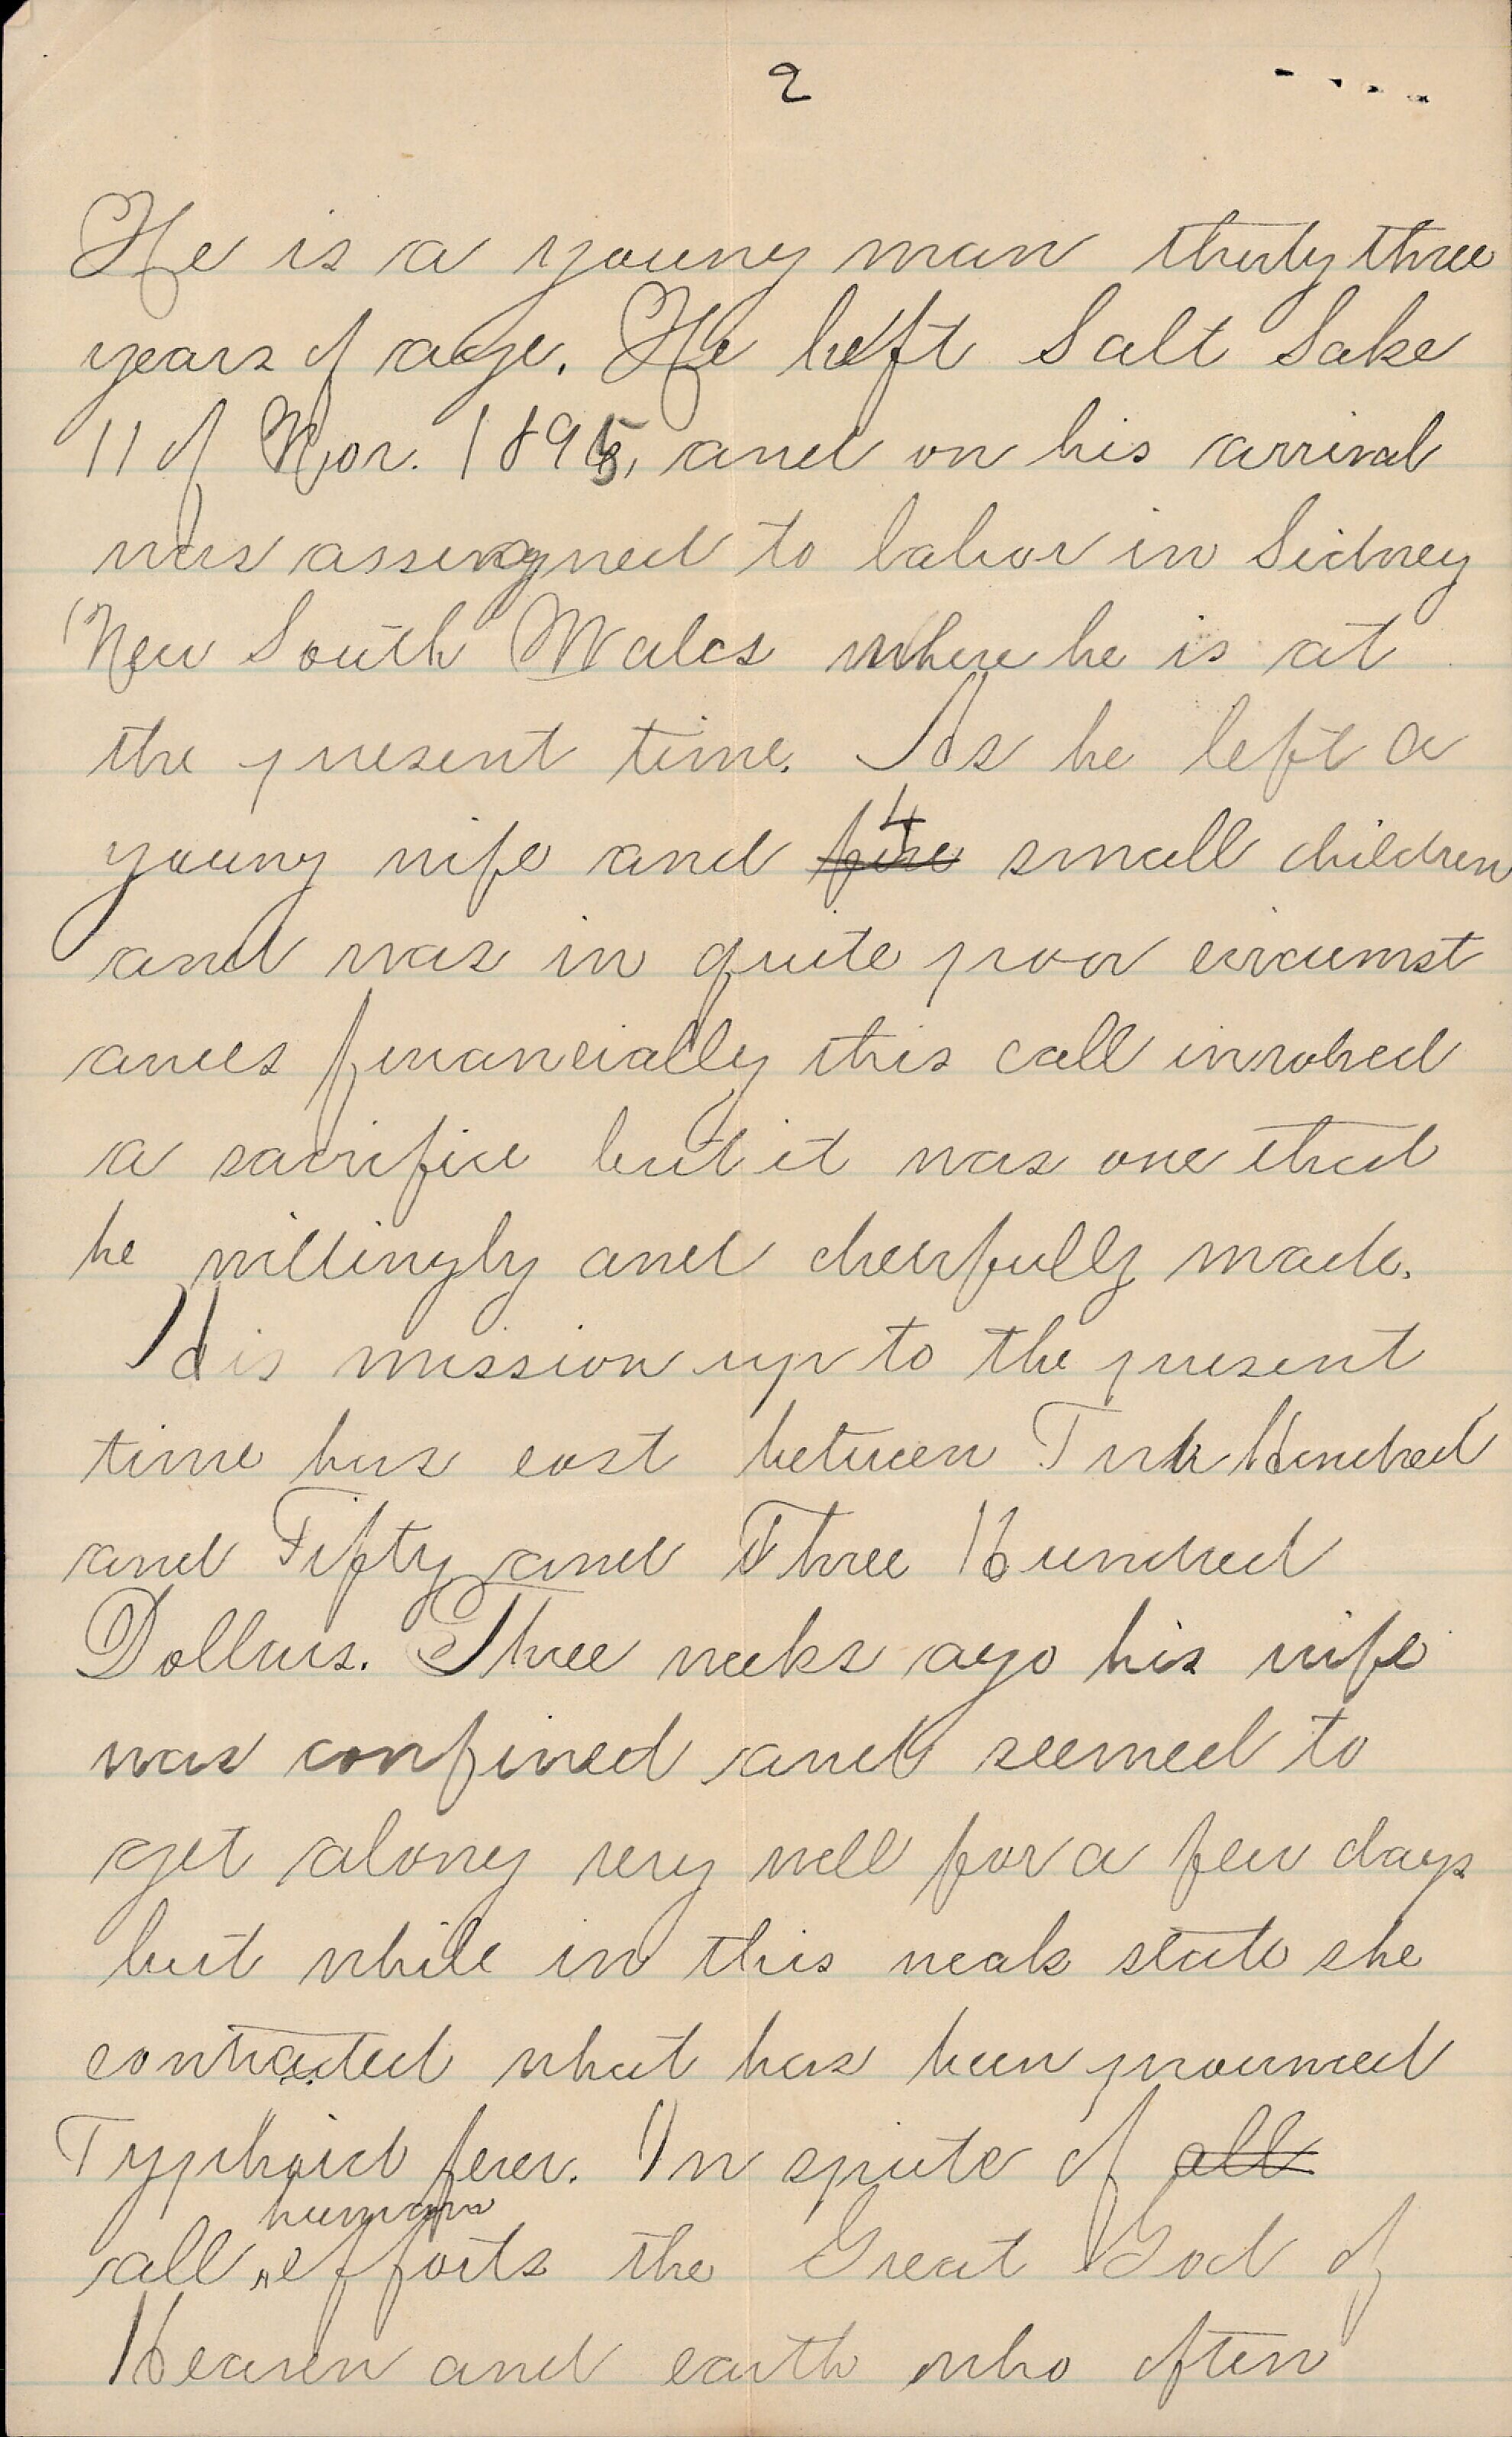 2
He is a young man thirty three
years of age. He left Salt Lake
11 of Nov. 1895, and on his arrival
was assigned to labor in Sidney
New South Wales where he is at
the present time. As he left a
young wife and five 4 small children
and was in quite poor circumst
ances financially this call involved
a sacrifice but it was one that
he willingly and cheerfully made.
His mission up to the present
time has cost between Two Hundred
and Fifty and Three Hundred
Dollars. Three weeks ago his wife
was confined and seemed to
get along very well for a few days
but while in this weak state she
contracted what has been prounced
Typhoid fever. In spite of all
human
all efforts the Great God of
Heaven and earth who often